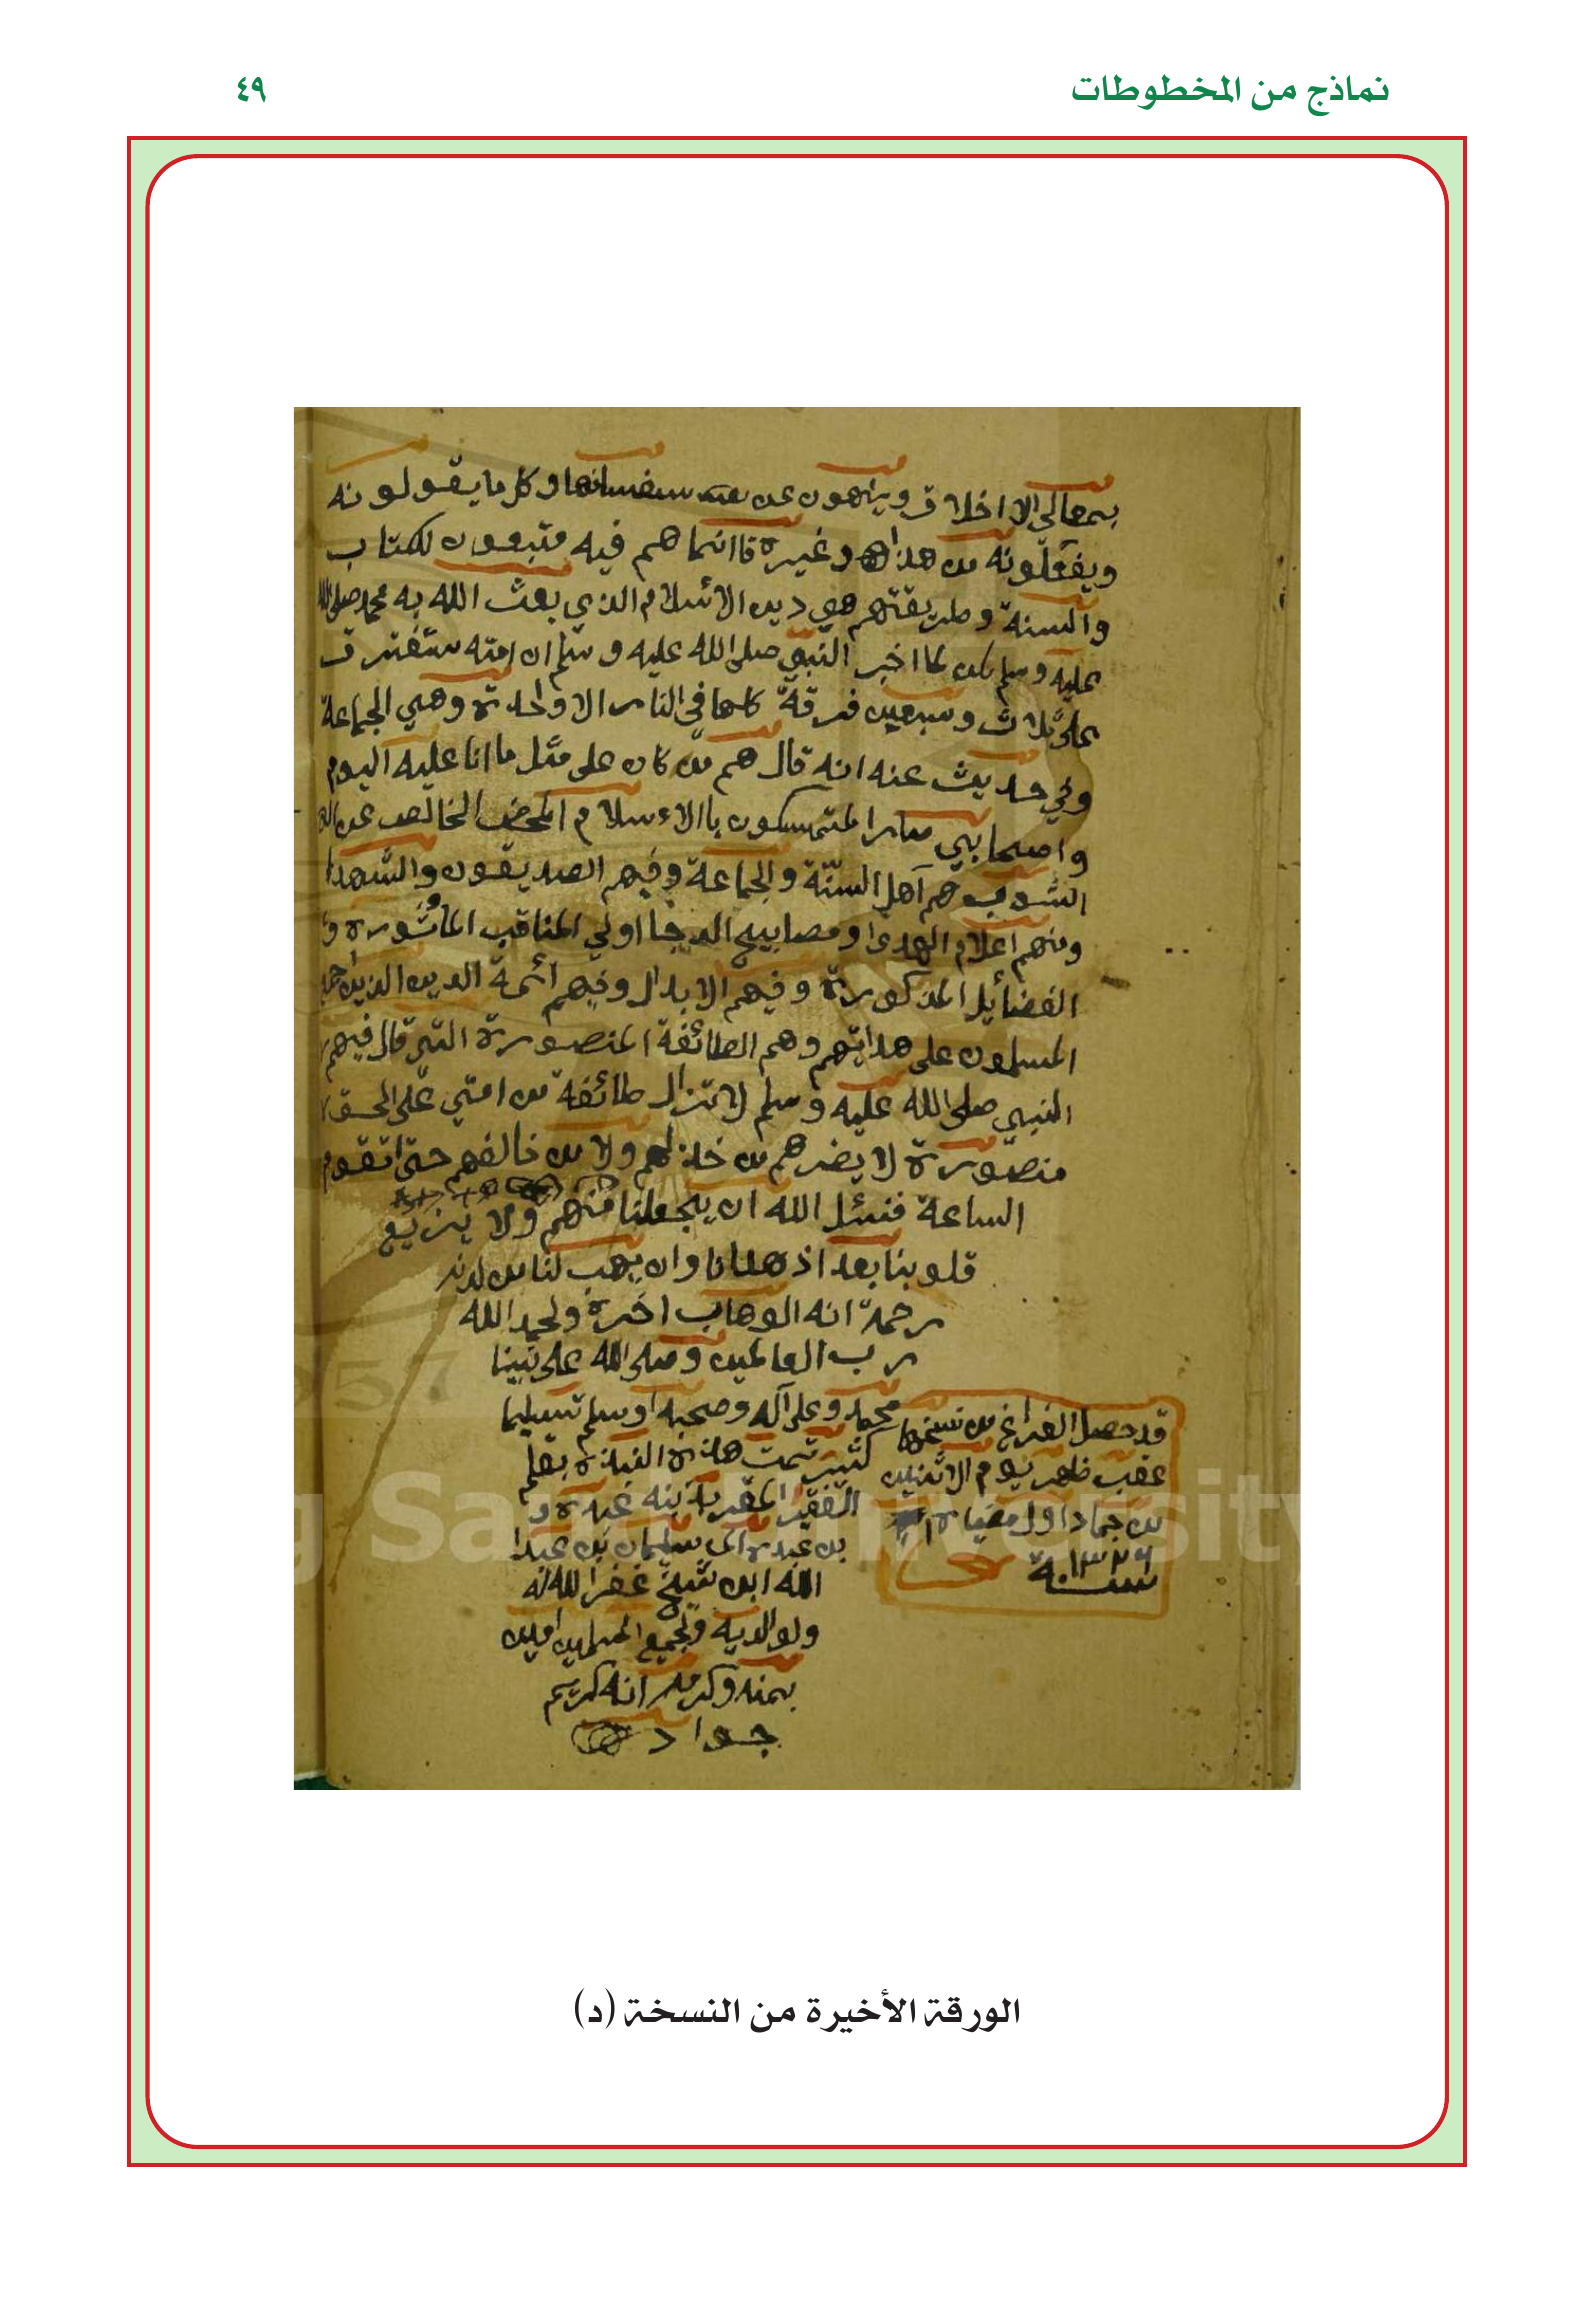 نماذج من المخطوطات
٤٩
بمعالي الاخلاق وينهون عن سفسافها وكل ما يقولونه
ويفعلونه من هذا وغيره فاانما هم فيه متبعون لكتاب
والسنة وطريقتهم هي دين الاسلام الذي بعث الله به محمد صلى الله
عليه وسلم لكن لما اخبر النبي صلى الله عليه وسلم ان امته ستفترق
على ثلاث وسبعين فرقة كلها في النار الا واحدة وهي الجماعة
وفي حديث عنه انه قال هم من كان على مثل ما انا عليه اليوم
واصحابي صار المتمسكون باالاءسلام المحض الخالص عن
الشوب هم اهل السنة والجماعة وفيهم الصديقون والشهدا
ومنهم اعلام الهدىٰ ومصابيح الدجا اولي المناقب المأثورة و
الفضائيل المذكورة وفيهم الابدال وفيهم أئمة الدين الذين
المسلمون على هدايتهم وهم الطائفة المنصورة التي قال فيهم
النبي صلى الله عليه وسلم لا تزال طائفة من امتي على الحق
منصورة لا يضرهم من خذلهم ولا من خالفهم حتى اتقوم
الساعة فنسئل الله ان يجعلنا منهم ولا يزيغ
قلوبنا بعد اذ هدانا وان يهب لنا من لدنه
رحمة انه الوهاب اخره ولحمد الله
رب العالمين وصلى الله على نبينا
محمد وعلى آله وصحبه اوسلم تسليما
كثير تمت هذه النبذة بقلم
الفقير المقر بذنبه عبده و
بن عبده سليمان بن عبدا
الله ابن شيخ غفر الله له
ولوالديه ولجميع المسلمين امين
بمنه وكرمه انه كريم
جواد
قد حصل الفراغ من نسخها
عقب ظهر يوم الاثنين
من جماد اول
سنة ١٣٢٦
King Saud University
957
الورقة الأخيرة من النسخة (د)